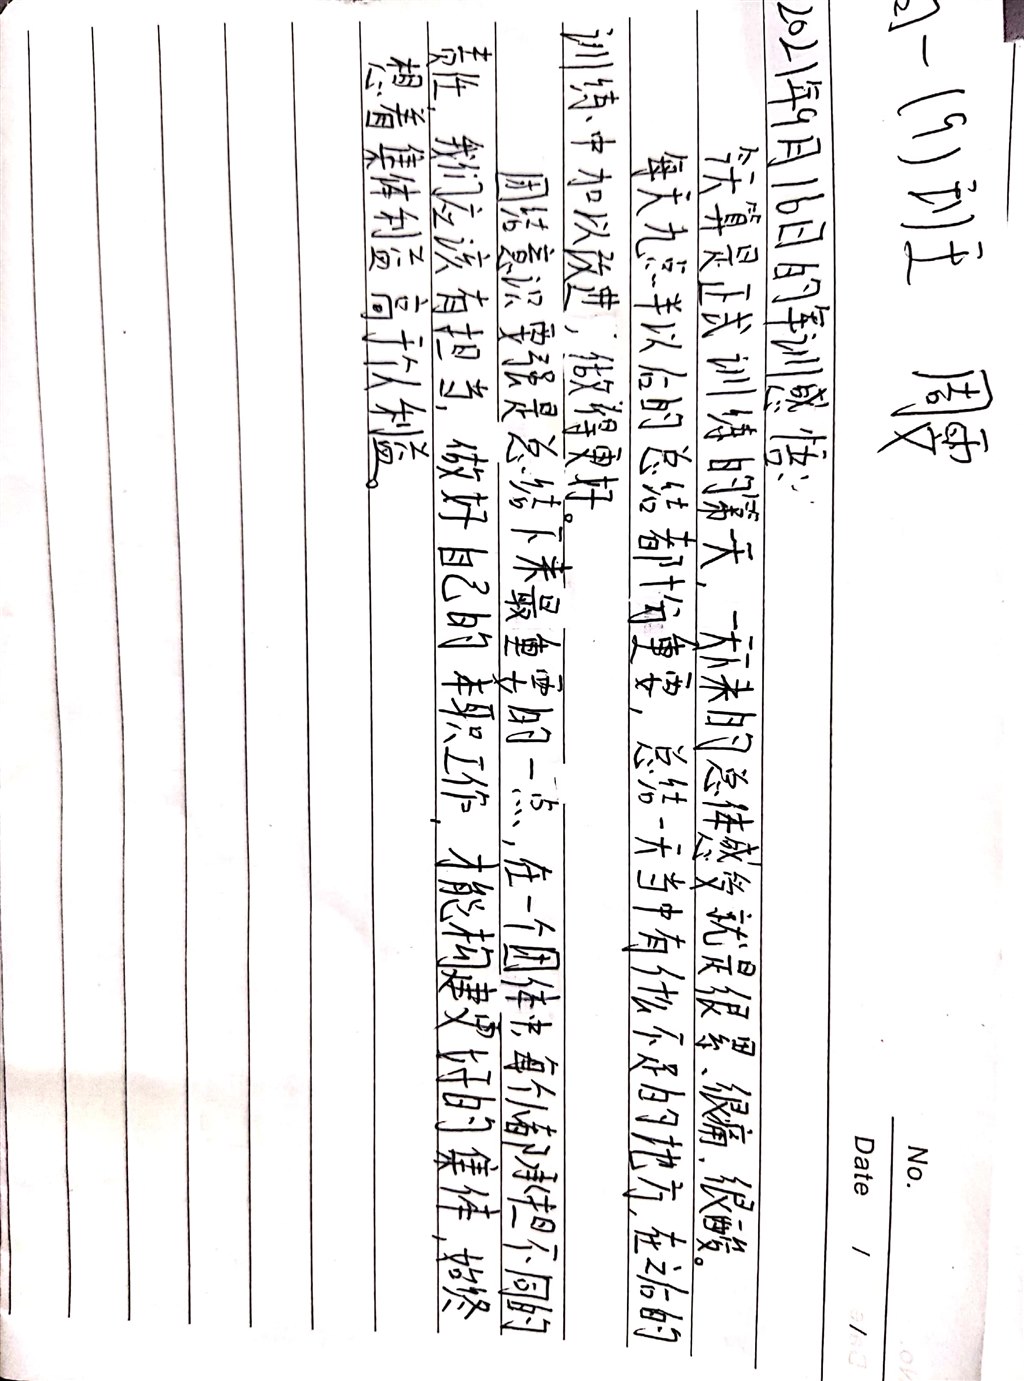 No.
Date / /
高一(9)班 周雯
2021年9月16日的军训感悟：
今天算是正式训练的第一天，一天下来的总体感受就是很累、很痛、很酸。
每天九点半以后的总结都十分重要，总结一天当中有什么不足的地方，在之后的
训练中加以改进，做得更好。
团结意识要强是总结下来最重要的一点，在一个团体中，每个人都承担不同的
责任，我们应该有担当，做好自己的本职工作，才能构建更好的集体，始终
想着集体利益高于个人利益。